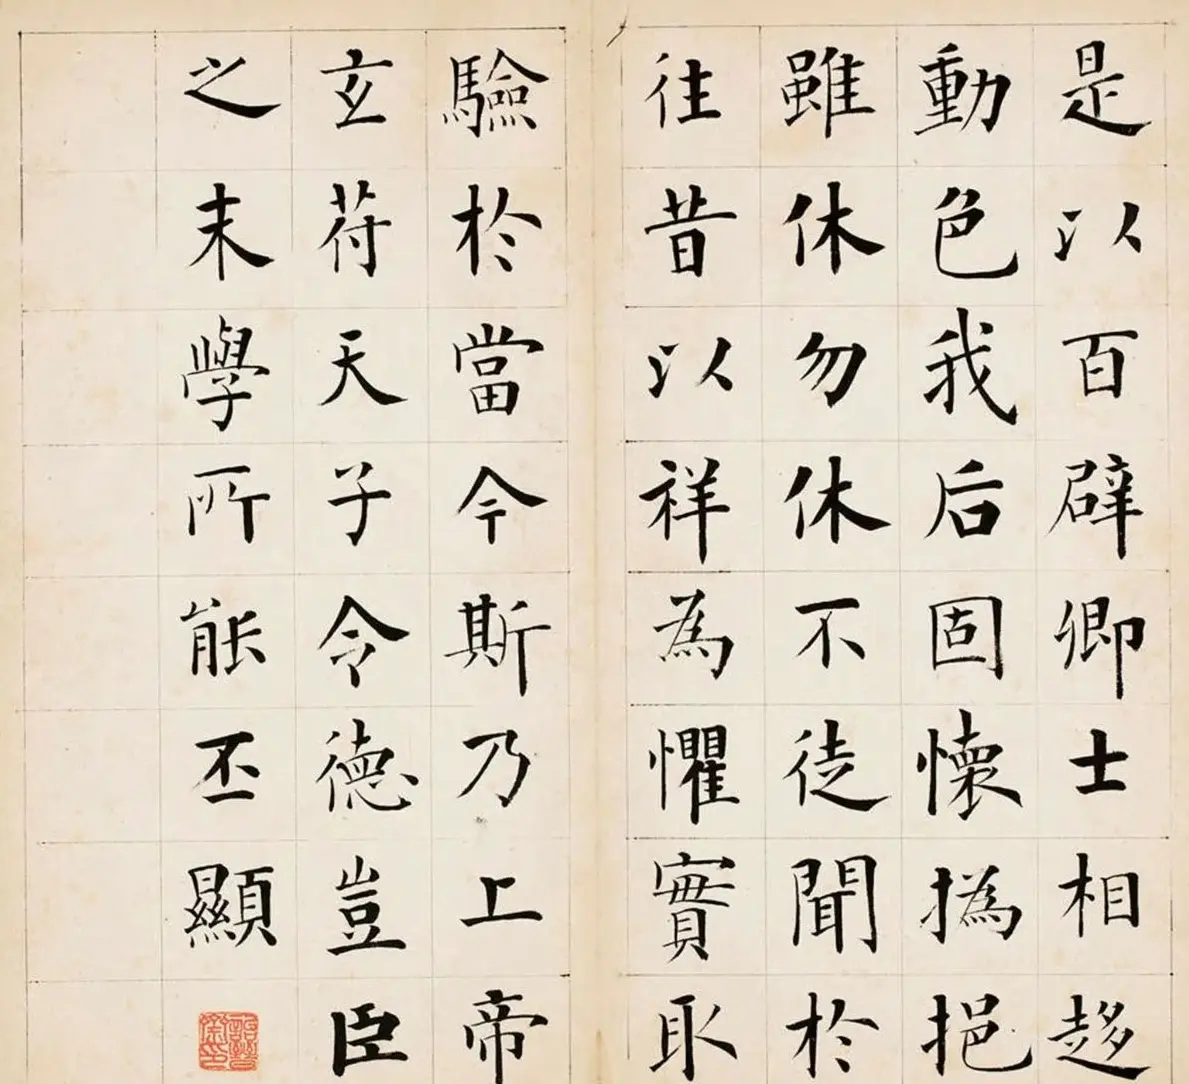 是以百辟卿士相趍
動色我后固懷撝挹
雖休勿休不徒聞於
往昔以祥為懼實取
驗於當今斯乃上帝
玄苻天子令德豈臣
之末學所能丕顯